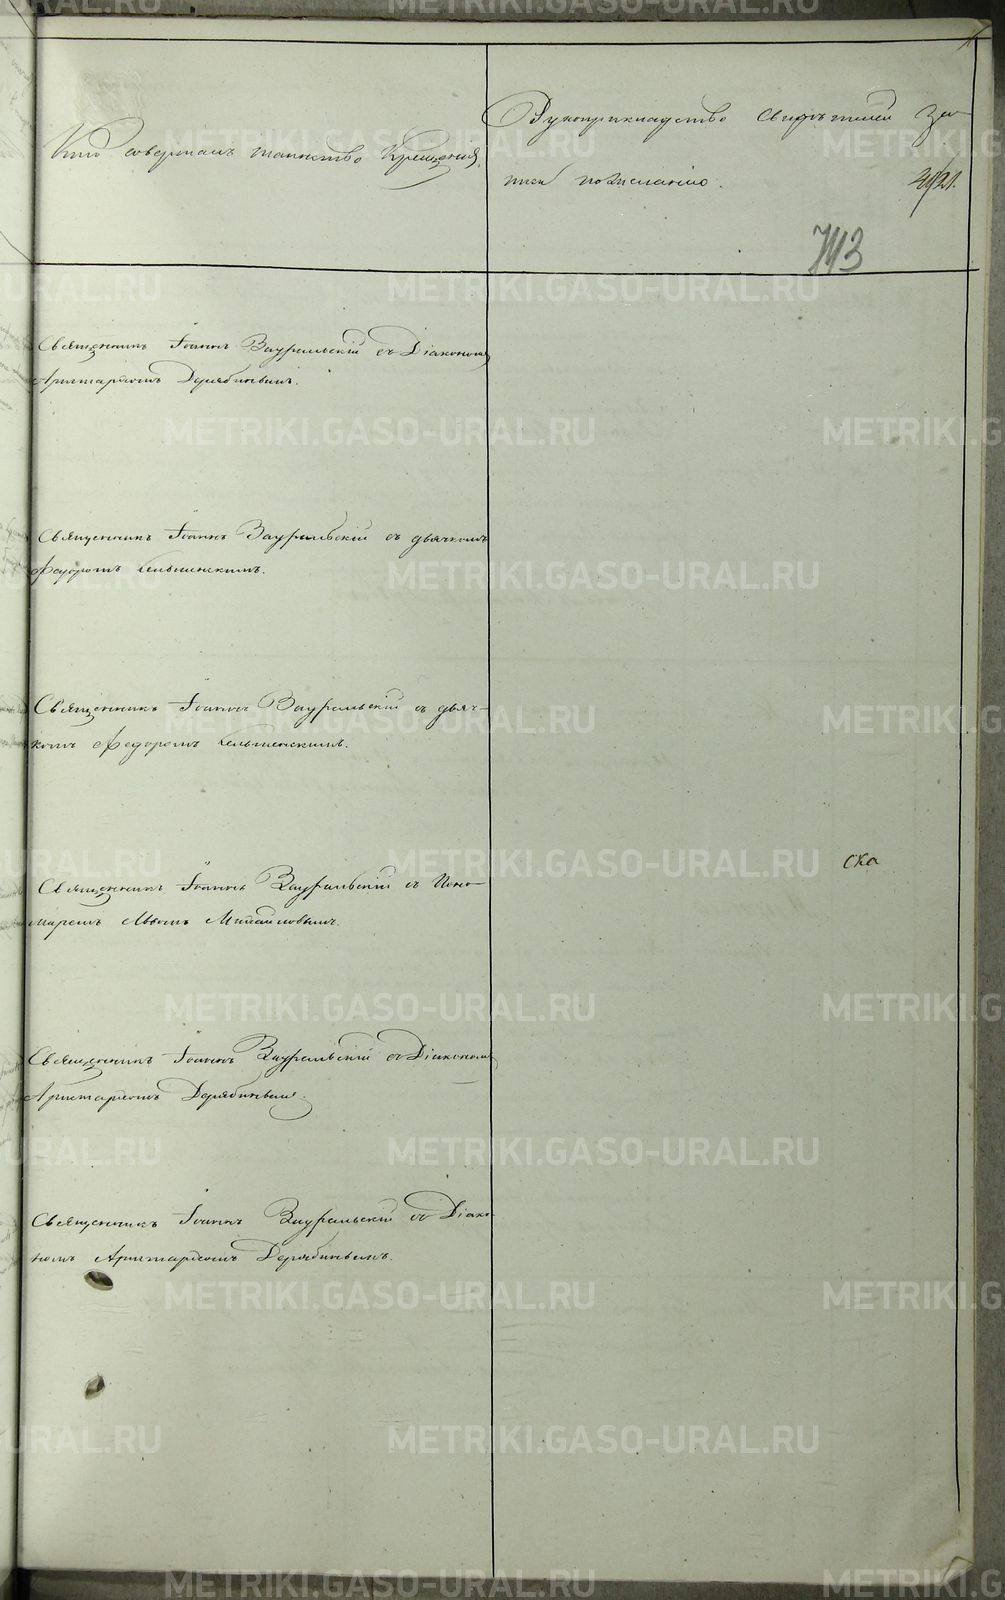 Кто совершалъ таинство Крещенія.
Рукоприкладство свидѣтелей за-
писи по желанію.
743
Священникъ Іоаннъ Зауральскій съ Діакономъ
Аристархомъ Дерябинымъ.
Священникъ Іоаннъ Зауральскій съ дьячкомъ
Федоромъ
Священникъ Іоаннъ Зауральскій съ дьяч-
комъ Федоромъ
Священникъ Іоаннъ Зауральскій съ Поно-
маремъ Львомъ Михайловымъ.
ска
Священникъ Іоаннъ Зауральскій съ Діакономъ
Аристархомъ Дерябинымъ.
Священникъ Іоаннъ Зауральскій съ Діако-
номъ Аристархомъ Дерябинымъ.
METRIKI.GASO-URAL.RU